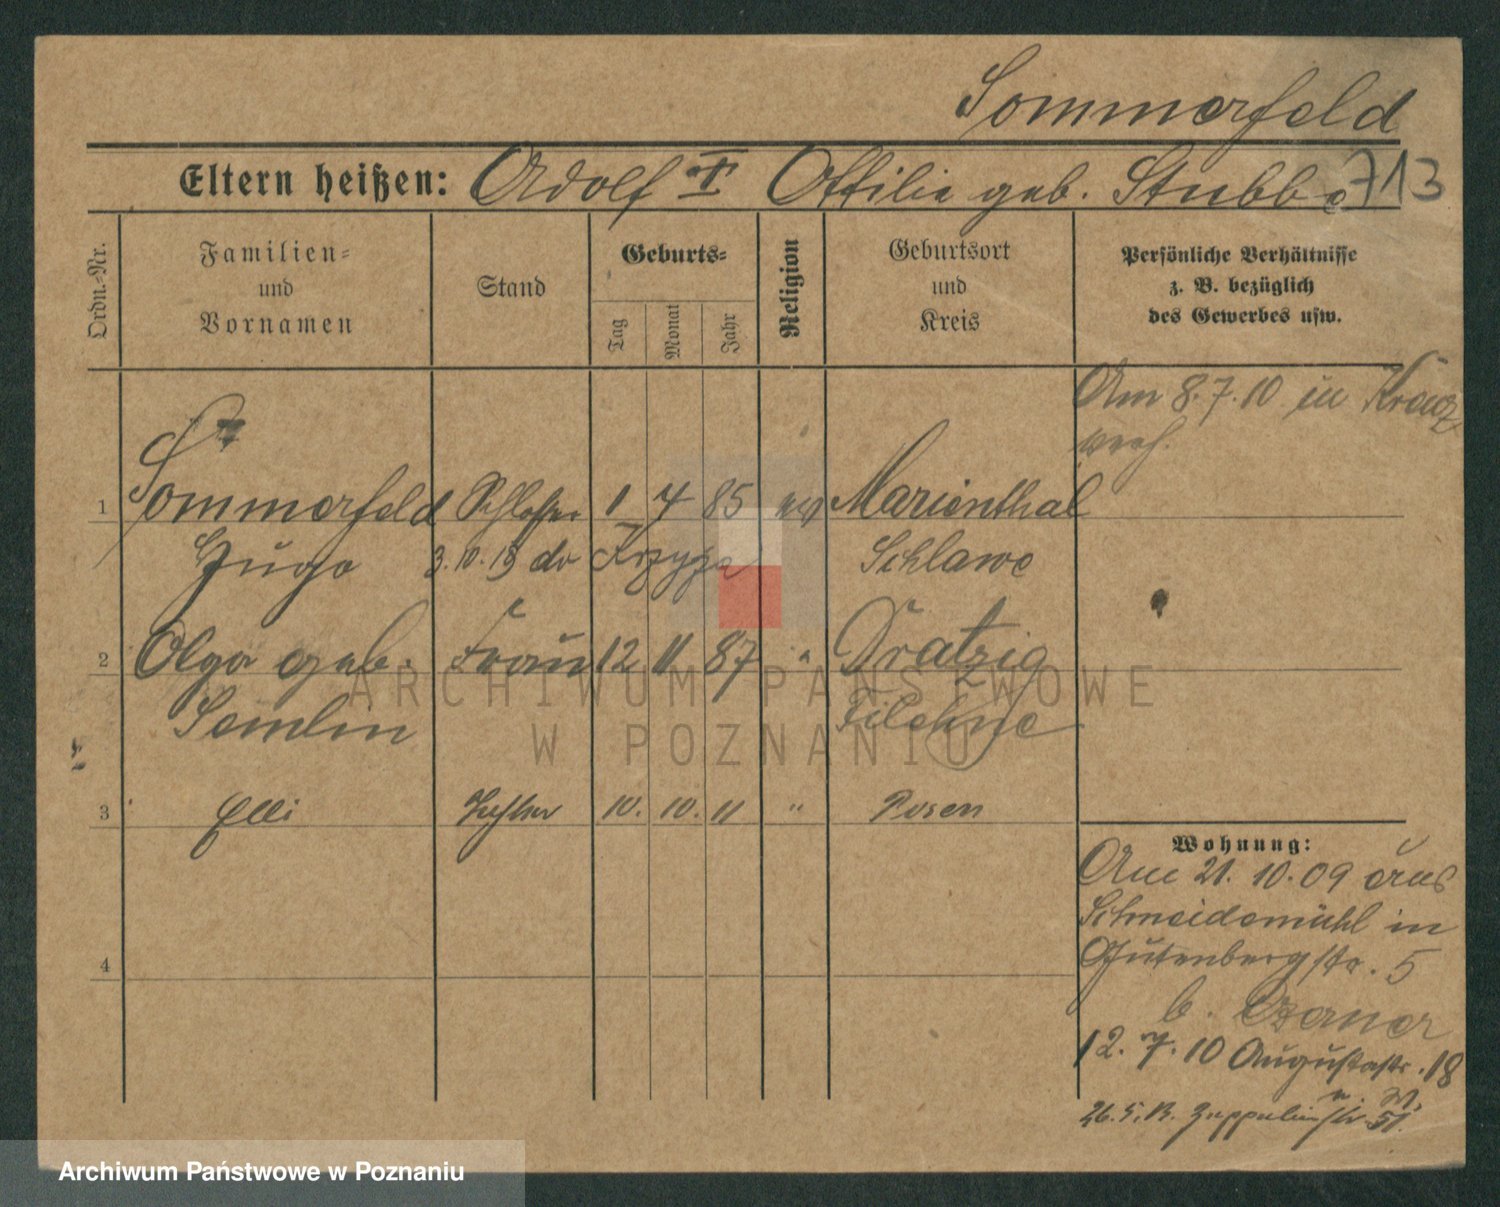 Sommerfeld
Eltern heißen: Adolf Ottilie geb. Stubbe 713
Ordn.-Nr.
Familien-
und
Vornamen
Stand
Geburts-
Tag
Monat
Jahr
Religion
Geburtsort
und
Kreis
Persönliche Verhältnisse
z. B. bezüglich
des Gewerbes usw.
Am 8.7.10 in Kreuz
verh.
1 Sommerfeld Schlosser 1 7 85 ev Marienthal
Hugo 3.10.13 Schlawe
2 Olga geb. Frau 12 11 87 " Dratzig
Semlin Filehne
3 Elli Tochter 10. 10. 11 " Posen
4
Wohnung:
Am 21.10.09 aus
Schneidemühl in
Gutenbergstr. 5
b.
12.7.10 Augustastr. 18
26.5.13. Zeppelinstr. 51.
ARCHIWUM PAŃSTWOWE
W POZNANIU
Archiwum Państwowe w Poznaniu